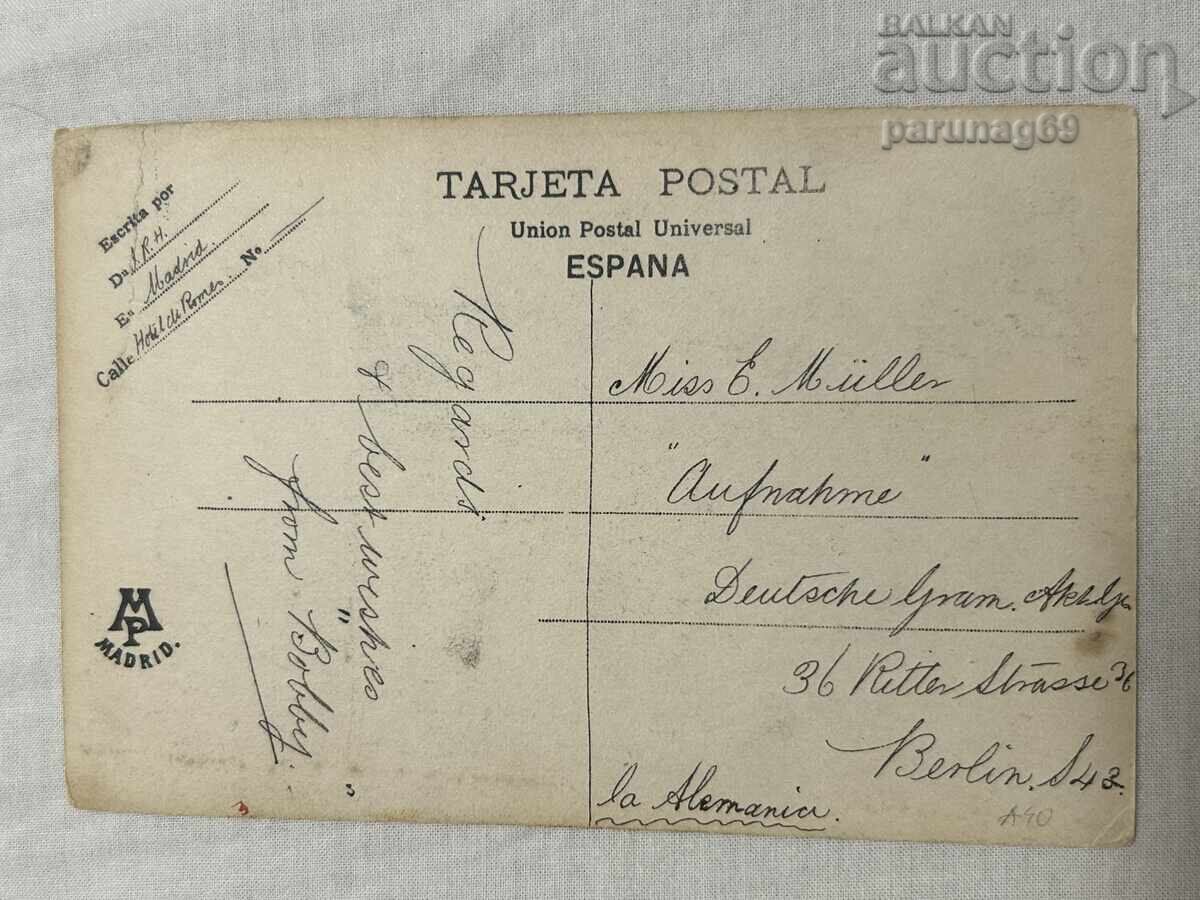 BALKAN
auction
parunag69
TARJETA POSTAL
Union Postal Universal
ESPANA
Escrita por
Dn J. R. H.
En Madrid.
Calle Hotel de Rome Nº
Regards
& best wishes
from "Bobby"
Miss E. Müller
"Aufnahme"
Deutsche Gram.
36 Ritter Strasse 36
Berlin. S 42.
la Alemania.
MP
MADRID.
3
A40